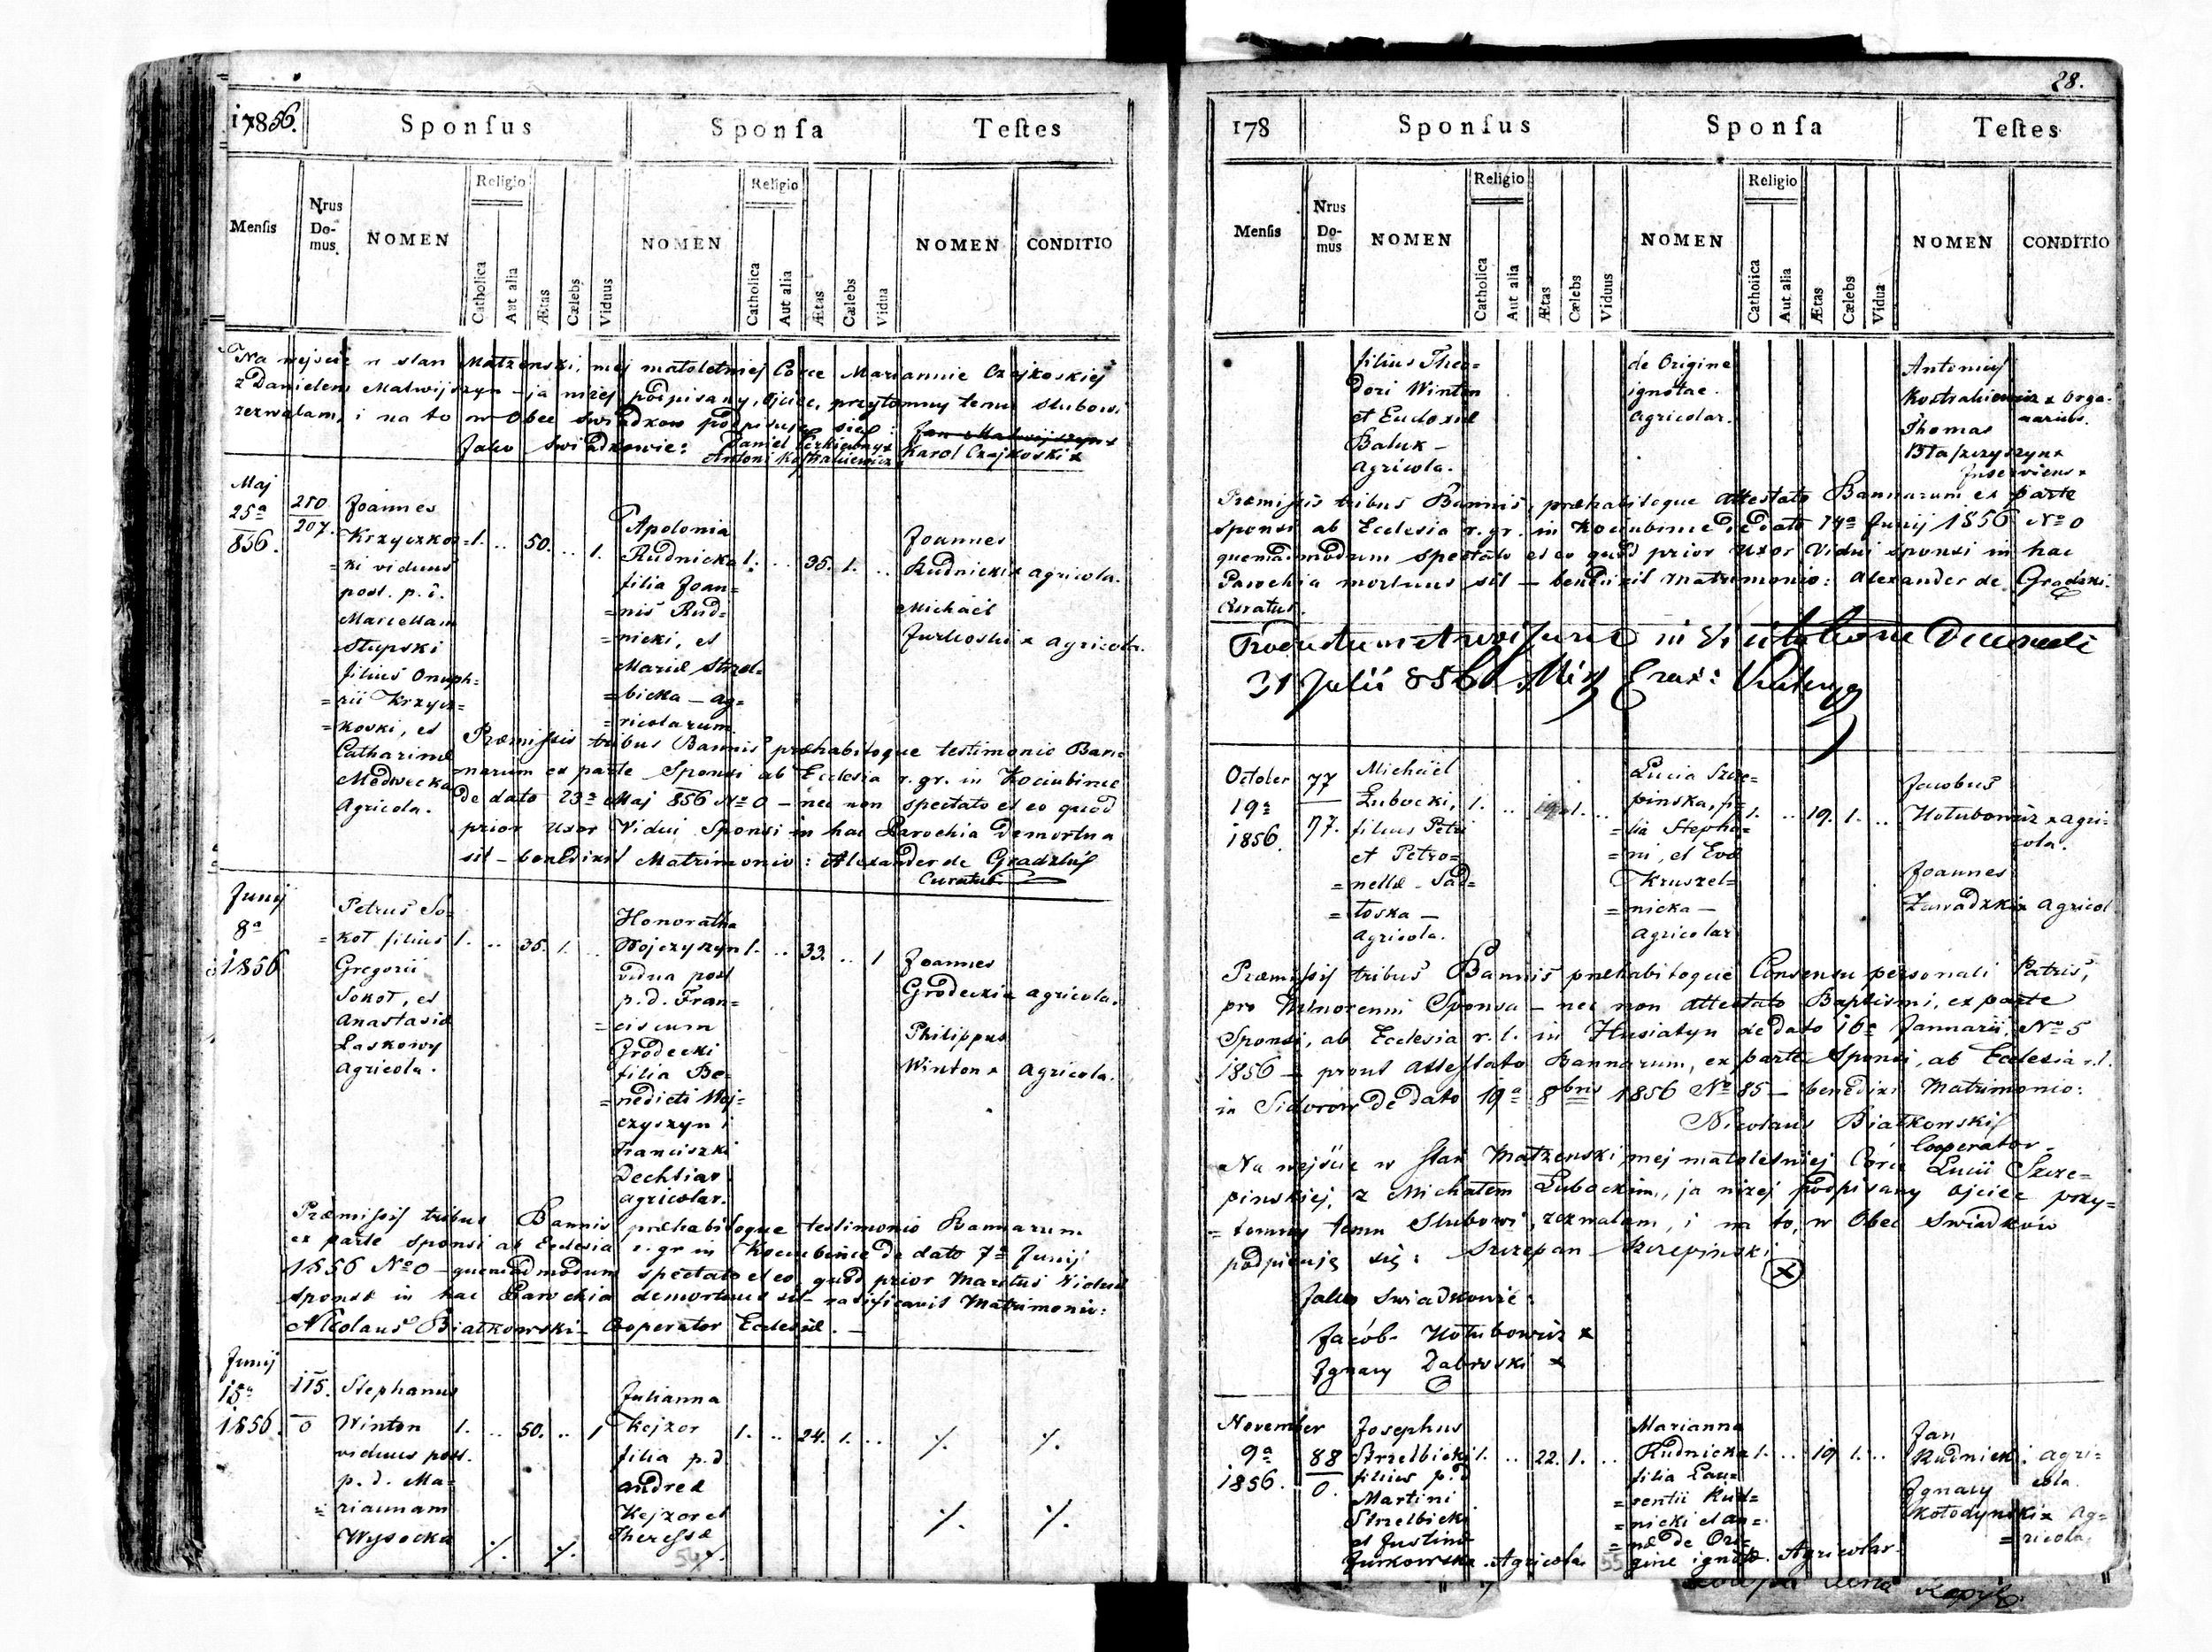 17856.
Sponsus
Sponsa
Testes
Mensis
Nrus Domus
NOMEN
Religio
Catholica
Aut alia
Ætas
Cælebs
Viduus
NOMEN
Religio
Catholica
Aut alia
Ætas
Cælebs
Vidua
NOMEN
CONDITIO
Na wejście w stan Małżenski, mej małoletniej Corce Mariannie Czajkoskiej
z Danielem Matwijszyn – ja niżej podpisany, Ojciec, przytomny temu slubowi
zezwalam, i na to w Obec swiadkow podpisuję się:
Jan Matwijszyn x
Jako swiadkowie: Daniel
Karol Czajkoski x
Antoni Kostrakiewicz
Maj
25ª
856.
210
207.
Joannes
Krzyczkow=
=ki viduus
post. p. d.
Marcellam
Słupski
filius Onuph=
=rii Krzycz=
=koski, et
Catharinæ
Medwecka
Agricola.
1. .. 50. .. 1.
Apolonia
Rudnicka
filia Joan=
=nis Rud=
=nicki, et
Mariæ Strzel=
=bicka – ag=
=ricolarum
1. .. 35. 1. ..
Joannes
Rudnicki x agricola.
Michaël
Jurkoski x agricola.
Præmissis tribus Bannis præhabitoque testimonio Ban=
=narum ex parte Sponsi ab Ecclesia r. gr. in Kociubince
de dato 23ª Maj 856 Nº 0 – nec non spectato et eo quod
prior Uxor Vidui Sponsi in hac Parochia demortua
sit – benedixit Matrimonio: Alexander de Gradzki
Curatus.
Junij
8ª
1856
Petrus So=
=koł filius
Gregorii
Sokoł, et
Anastasiæ
Laskowy
Agricola.
1. .. 35. 1. ..
Honoratha
Wojczyszyn
vidua post
p. d. Fran=
=ciscum
Grodecki
filia Be=
=nedicti Woj=
czyszyn i
Franciszki
Dechtiar
agricolar.
1. .. 33. .. 1
Joannes
Grodecki x agricola.
Philippus
Winton x agricola.
Præmissis tribus Bannis, præhabitoque testimonio Bannarum
ex parte sponsi ab Ecclesia r. gr in Kociubince de dato 7ª Junij
1856 Nº 0 – quemadmodum spectato et eo, quod prior Maritus Viduæ
sponsæ in hac Parochia demortuus sit – ratificavit Matrimonio:
Nicolaus Białkowski – Cooperator Ecclesiæ. –
Junij
15ª
1856.
115.
0
Stephanus
Winton
viduus post.
p. d. Ma=
=riannam
Wysocka
1. .. 50. .. 1
Julianna
Kejzor
filia p. d
andreæ
Kejzor et
Theressæ
1. .. 24. 1. ..
54
28.
178
Sponsus
Sponsa
Testes
Mensis
Nrus Domus
NOMEN
Religio
Catholica
Aut alia
Ætas
Cælebs
Viduus
NOMEN
Religio
Catholica
Aut alia
Ætas
Cælebs
Vidua
NOMEN
CONDITIO
filius Theo=
dori Winton
et Eudoxiæ
Baluk –
Agricola.
de Origine
ignotæ.
agricolar.
Antonius
Kostrakiewicz x orga=
narius.
Thomas
Błaszczyszyn x
Inserviens x
Præmissis tribus Bannis, præhabitoque Attestato Bannarum ex parte
sponsi ab Ecclesia r. gr. in Kociubince de dato 14ª Junij 1856 Nº 0
quemadmodum spectato et eo quod prior Uxor Vidui sponsi in hac
Parochia mortuus sit – benedixit Matrimonio: Alexander de Gradzki.
Curatus.
in Visitatione Decanali
31 Julii 856
October
19ª
1856.
77
77.
Michäel
Łubocki,
filius Petri
et Petro=
=nellæ – Sad=
=łoska –
agricola.
1. .. 1. ..
Lucia Szcze=
pinska, fi=
=lia Stepha=
=ni, et Evæ
Kruszel=
=nicka –
agricolar
1. .. 19. 1. ..
Jacobus
Hołubowicz x agri=
cola.
Joannes
Zawadzki x agricol
Præmissis tribus Bannis præhabitoque Consensu personali Patris,
pro Minorenni Sponsa – nec non attestato Baptismi, ex parte
Sponsi, ab Ecclesia r. l. in Husiatyn de dato 16ª Januarii, Nº 5
1856 – prout attestato Bannarum, ex parte Sponsi, ab Ecclesia r. l.
in Sidorow de dato 19ª 8bris 1856 Nº 85 – benedixi Matrimonio:
Nicolaus Białkowski
Cooperator.
Na wejście w Stan Małżenski, mej małoletniej Córce Lucii Szcze=
pinskiej, z Michałem Łubockim, ja niżej podpisany Ojciec przy=
=tomny temu Slubowi, zezwalam, i na to, w Obec Swiadków
podpisuję się: Szczepan Szczepinski
x
Jako swiadkowie:
Jacób Hołubowicz x
Ignacy Dabroski x
November
9ª
1856.
88
0.
Josephus
Strzelbicki
filius p. d
Martini
Strzelbicki
et Justinæ
Jurkowska. Agricola.
1. .. 22. 1. ..
Marianna
Rudnicka
filia Lau=
=rentii Rud=
=nicki et an=
=næ de Ori=
gine ignotæ. Agricolar.
1. .. 19 1. ..
Jan
Rudnicki. agri=
cola.
Ignacy
Kołodynski x ag=
=ricola.
55